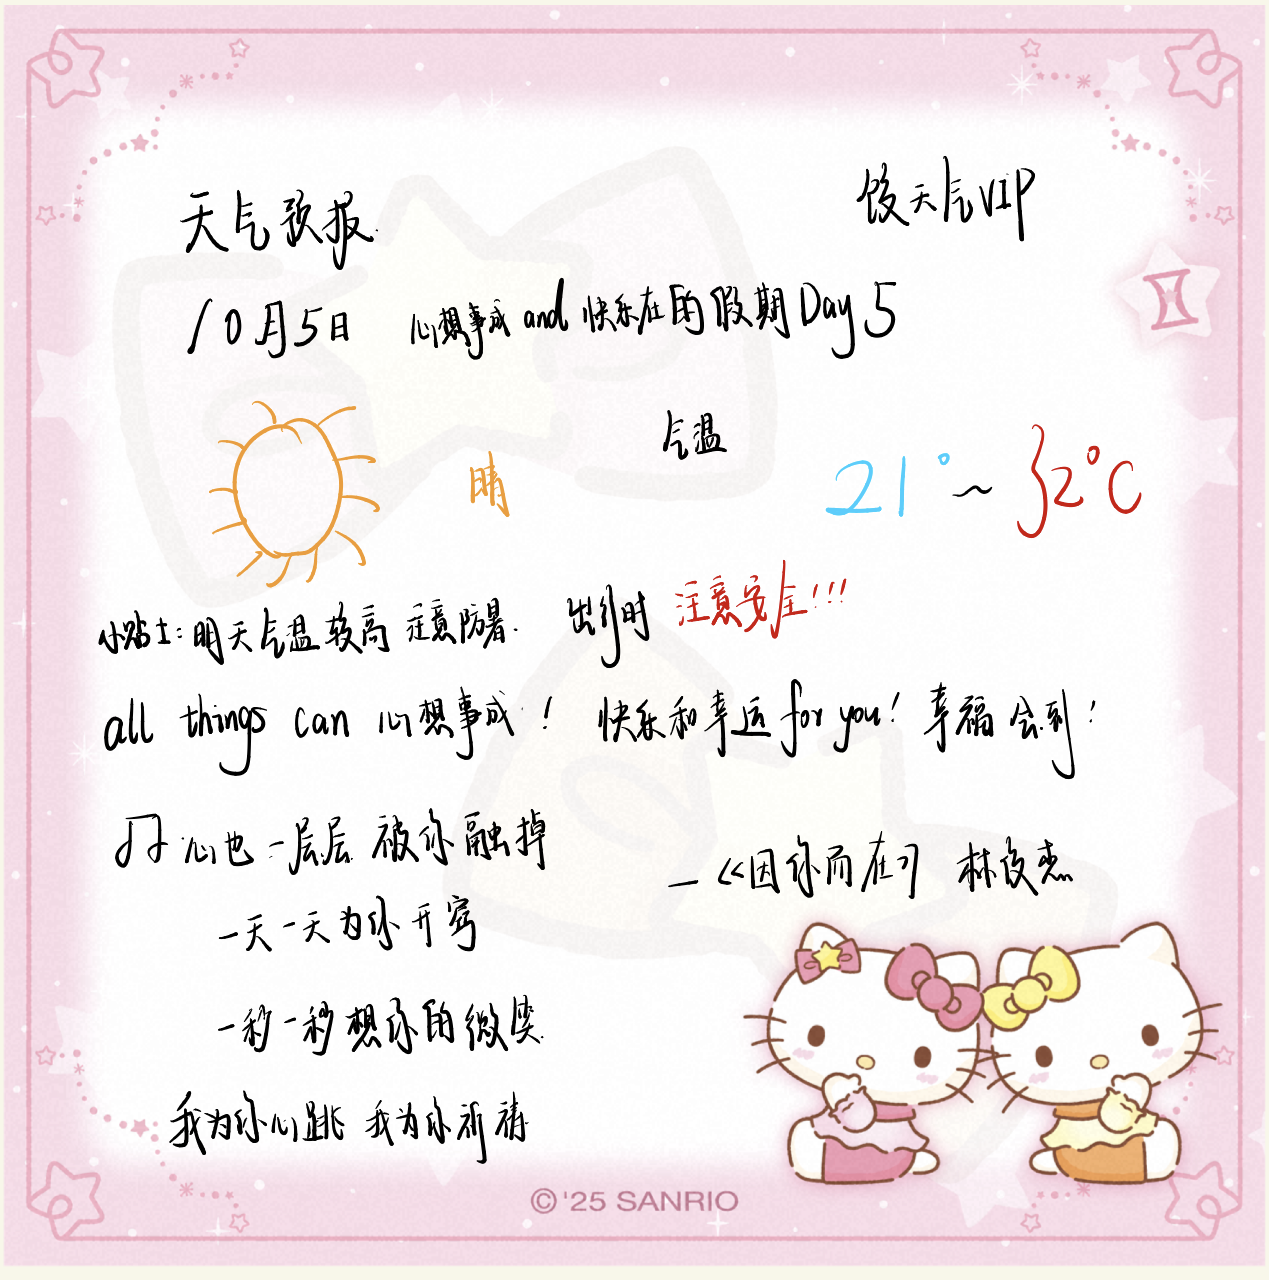 天气预报
饺天气VIP
10月5日 心想事成 and 快乐在的假期 Day 5
气温
晴 21°~32°C
小贴士:明天气温较高 注意防暑. 出行时 注意安全!!!
all things can 心想事成! 快乐和幸运 for you! 幸福会到!
心也一层层 被你融掉
—《因你而在》 林俊杰
一天一天为你开窍
一秒一秒想你的微笑
我为你心跳 我为你祈祷
©'25 SANRIO